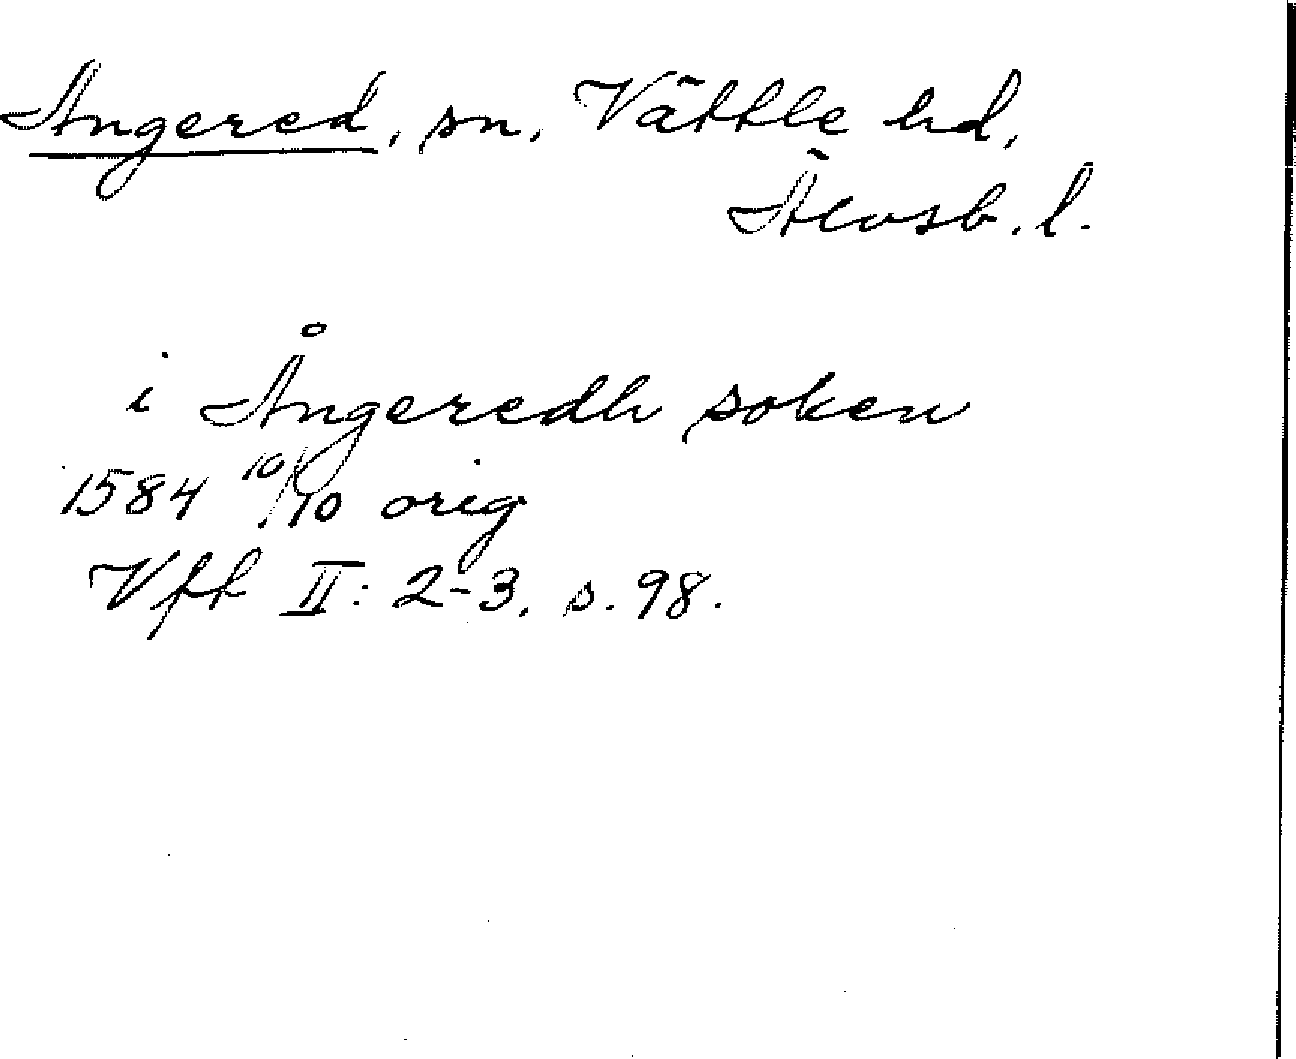 Angered, sn, Vättle hd,
Älvsb. l.
i Ångeredh soken
1584 10/10 orig
Vfft II: 2-3, s. 98.